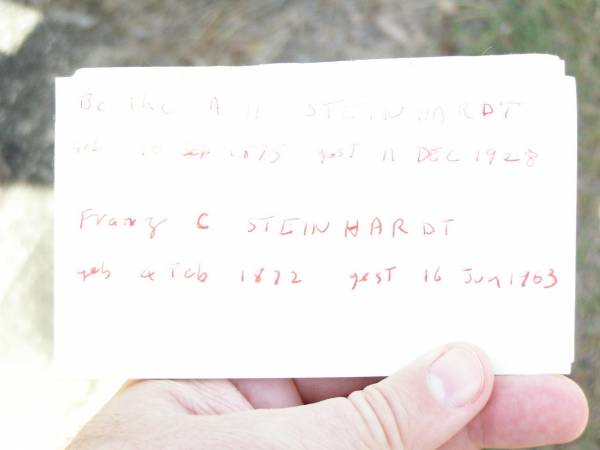 A H STEINHARDT
geb 10 sep 1875 gest 11 DEC 1928
Franz C STEINHARDT
geb 4 Feb 1872 gest 16 Jun 1963